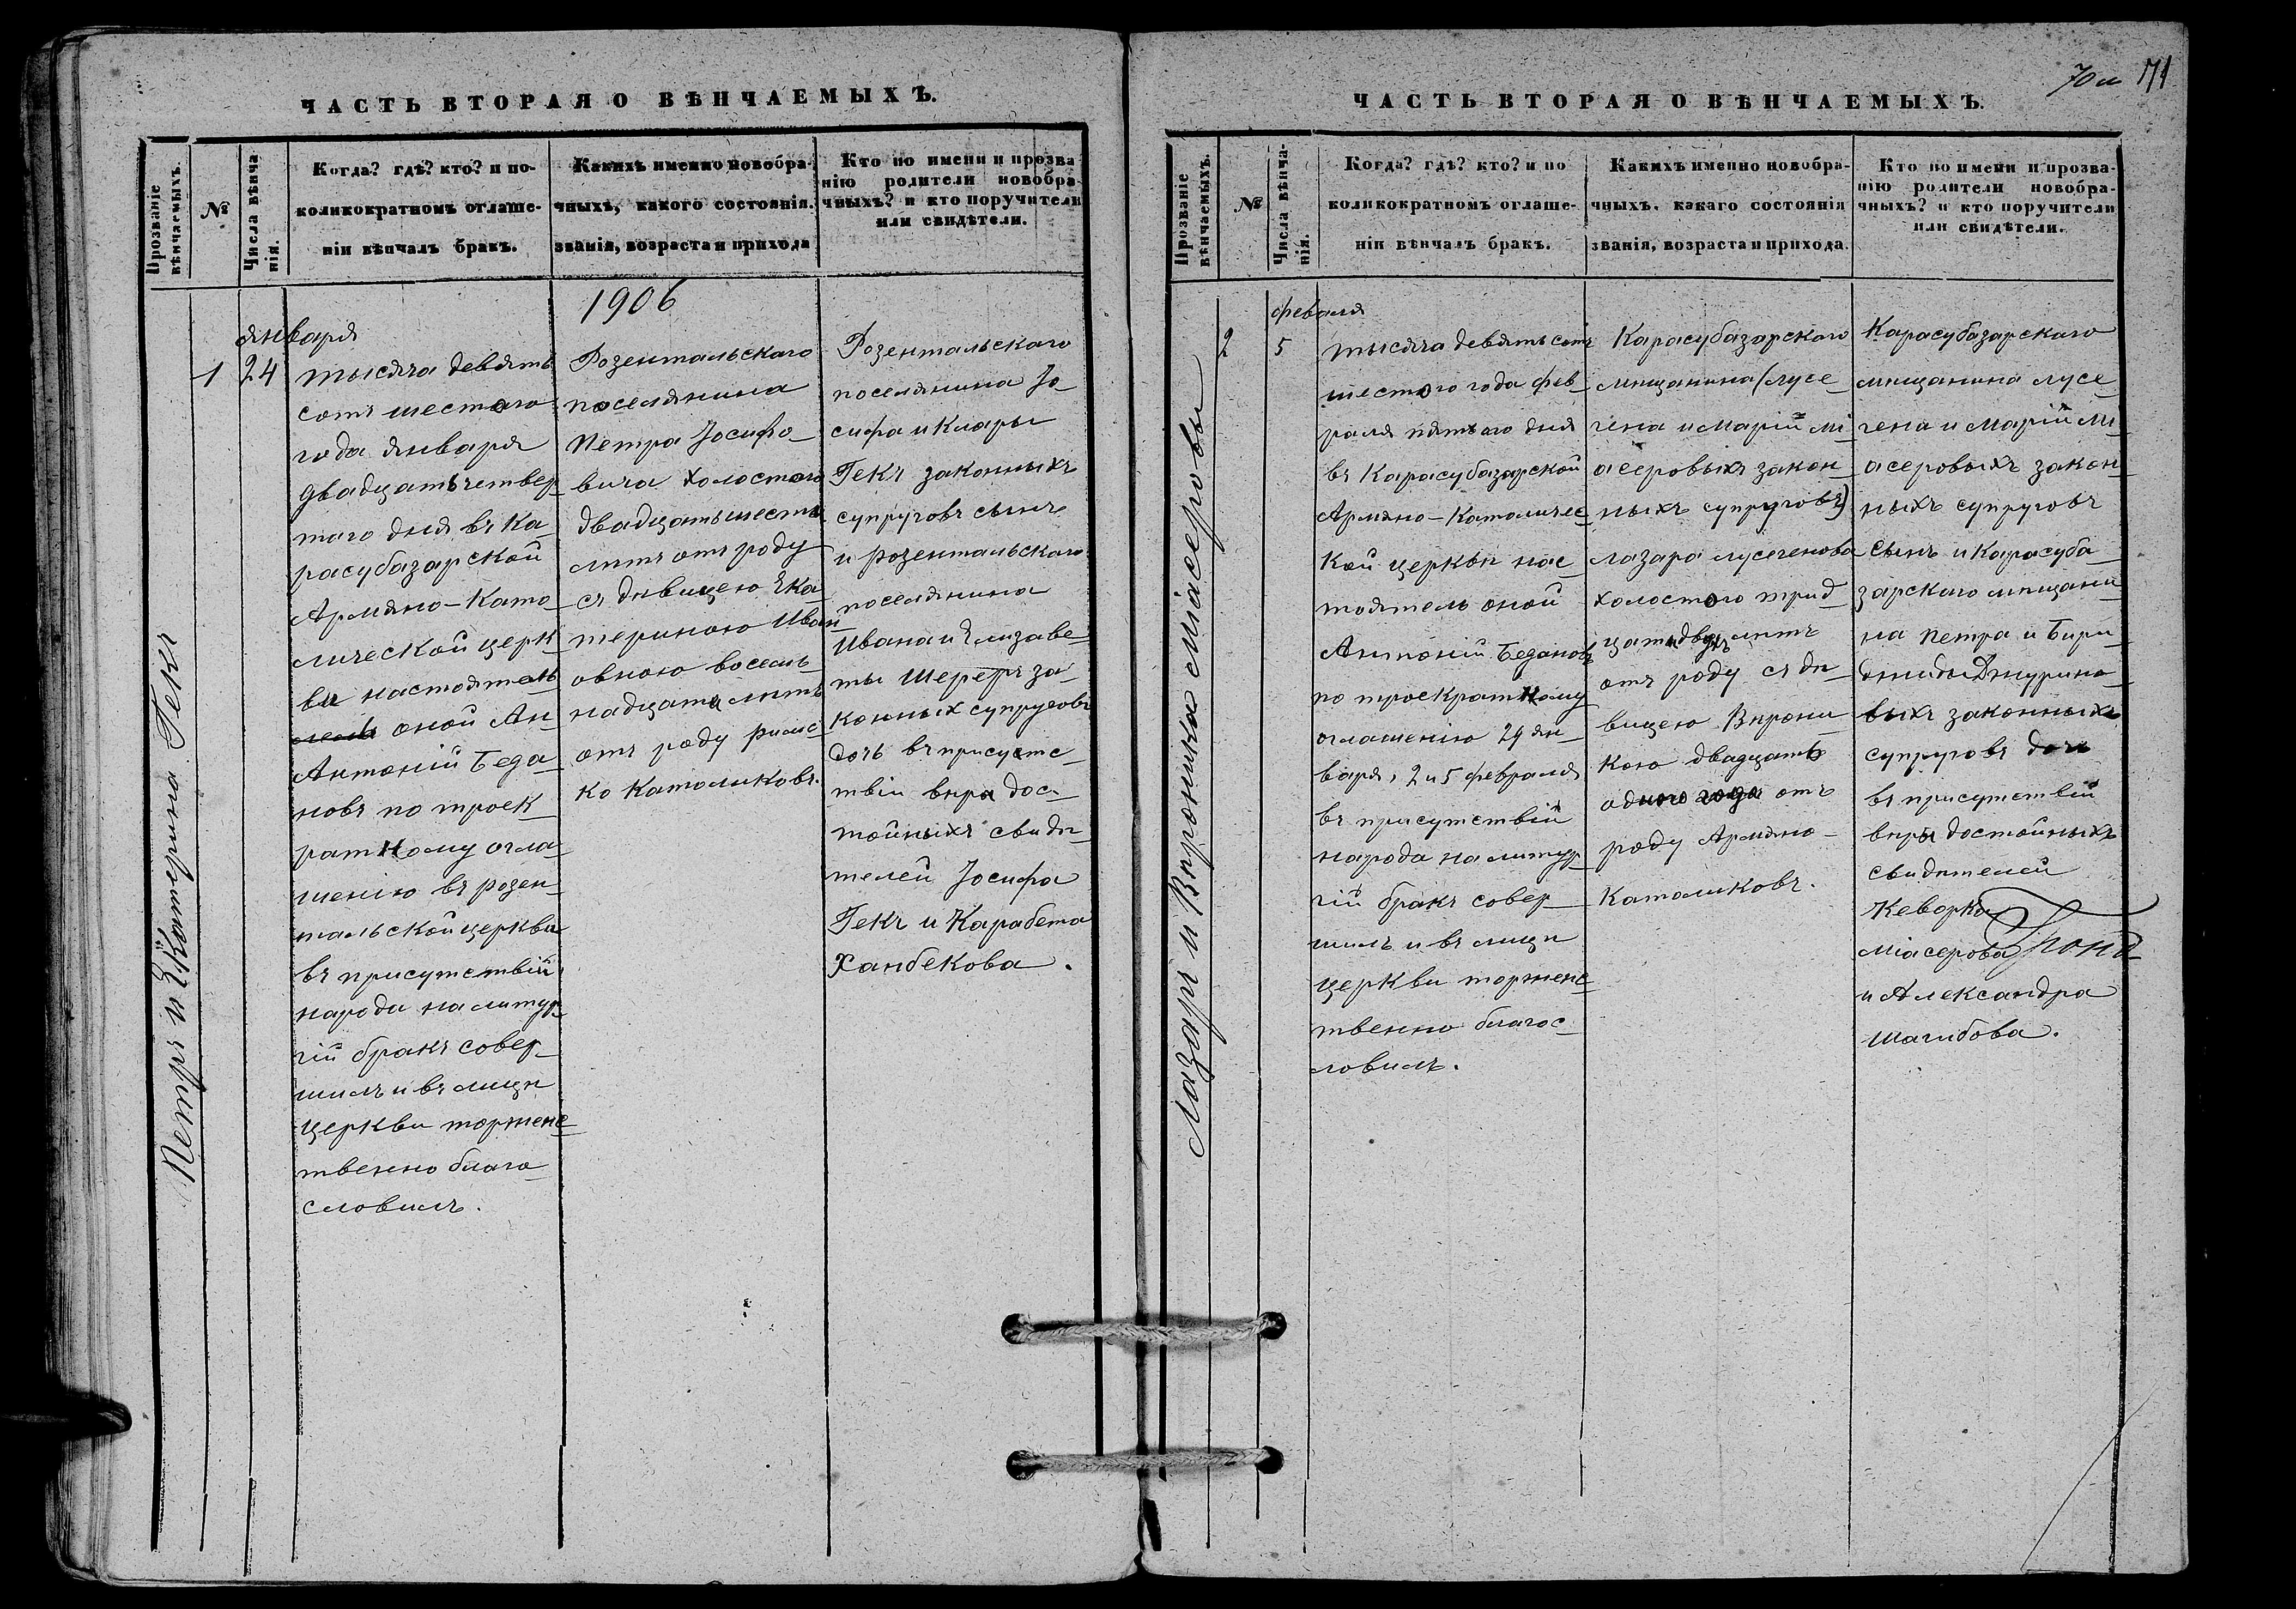 ЧАСТЬ ВТОРАЯ О ВѢНЧАЕМЫХЪ.
Прозваніе вѣнчаемыхъ.
№
Числа вѣнча
нія.
Когда? гдѣ? кто? и по-
коликократномъ оглаше-
ніи вѣнчалъ бракъ.
Какихъ именно новобра-
чныхъ, какого состоянія.
званія, возраста и прихода
Кто по имени и прозва
нію родители новобра-
чныхъ? и кто поручители
или свидѣтели.
1906
Петръ и Екатерина Гекъ
1
января
24
тысяча девять
сотъ шестого
года января
двадцатьчетвер
таго дня въ Ка
расубазарской
Армяно-Като
лической церк
ви настоятель
оной Ан
Антоній Беда
новъ по троек
ратному огла
шенію въ розен
тальской церкви
въ присутствіи
народа на литур
гій бракъ совер
шилъ и въ лицѣ
церкви торжес
твенно благо
словилъ.
Розентальскаго
поселянина
Петра Іосифо
вича холостого
двадцатьшесть
лѣтъ отъ роду
съ дѣвицею Ека
териною Иван
овною восем
надцати лѣтъ
отъ роду римс
ко Католиковъ.
Розентальскаго
поселянина Іо
сифа и Клары
Гекъ законныхъ
супруговъ сынъ
и розентальскаго
поселянина
Ивана и Елизаве
ты Шереръ за
конных супруговъ
дочь въ присутс
твіи вѣра дос
тойныхъ свидѣ
телей Іосифа
Гекъ и Карабета
Ханбекова.
71
ЧАСТЬ ВТОРАЯ О ВѢНЧАЕМЫХЪ.
Прозваніе вѣнчаемыхъ.
№
Числа вѣнча-
нія.
Когда? гдѣ? кто? и по
коликократномъ оглаше-
ніи вѣнчалъ бракъ.
Какихъ именно новобра-
чныхъ. какаго состоянія
званія, возраста и прихода.
Кто по имени и прозва-
нію родители новобра-
чныхъ? и кто поручители
или свидѣтели.
Лазаръ и Вѣроника Міасеровы
2
февраля
5
тысяча девятьсотъ
шестого года фев
раля пятаго дня
въ Карасубазарской
Армяно-Католичес
кой церкви нас
тоятель оной
Антоній Бедановъ
по троекратному
оглашенію 29 ян
варя, 2 и 5 февраля
въ присутствій
народа на литур
гій бракъ совер
шилъ и въ лицѣ
церкви торжес
твенно благос
ловилъ.
Карасубазарского
мѣщанина (лусе
гена и Марій Мі
асеровыхъ закон
ныхъ супруговъ)
лазара лусегенова
холостого трид
цатидвухъ лѣтъ
отъ роду съ дѣ
вицею Вѣрони
кою двадцать
одного года отъ
роду Армяно-
Католиковъ.
Карасубазарскаго
мѣщанина лусе
гена и Марій Мі
асеровыхъ закон
ныхъ супруговъ
сынъ и Карасуба
зарскаго мѣщани
на Петра и
супруговъ дочь
въ присутствій
вѣра достойныхъ
свидѣтелей
Кеворка
Міасерова
и Александра
Шагибова.